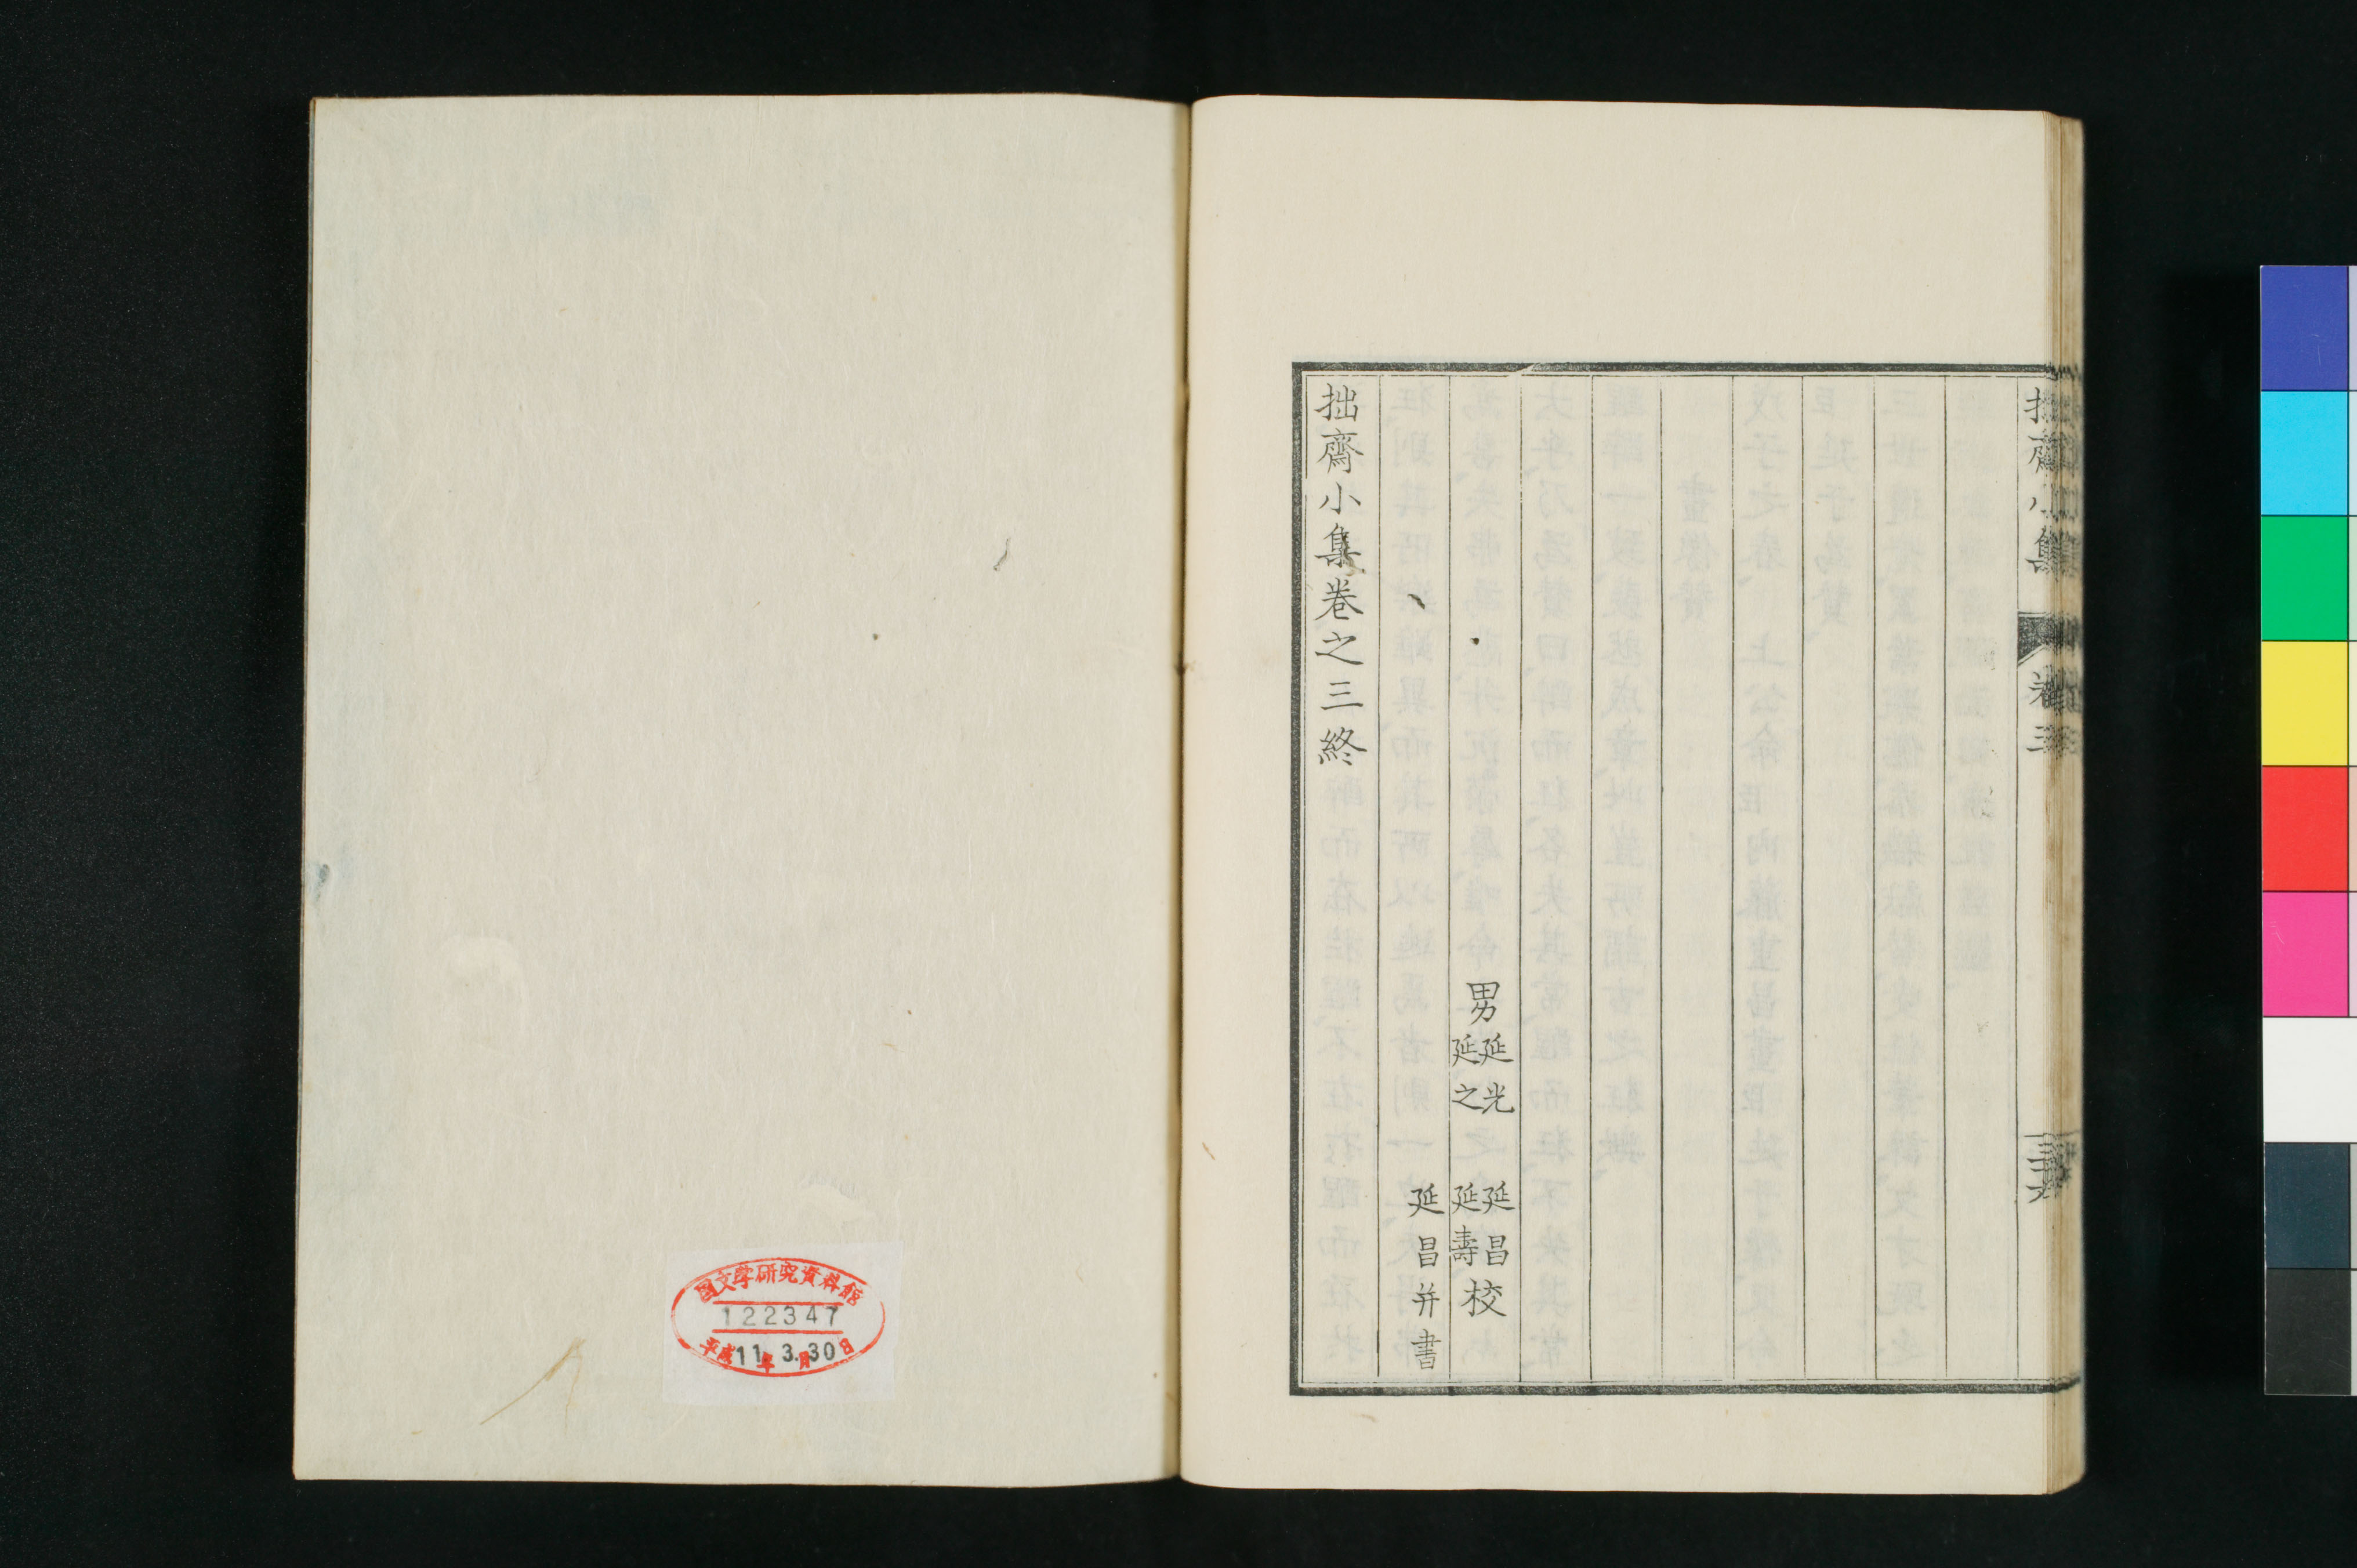 拙齋小集
卷三
男 延光 延昌
延之 延壽 校
延昌并書
拙齋小集卷之三終
国文学研究資料館
122347
平成11年3月30日